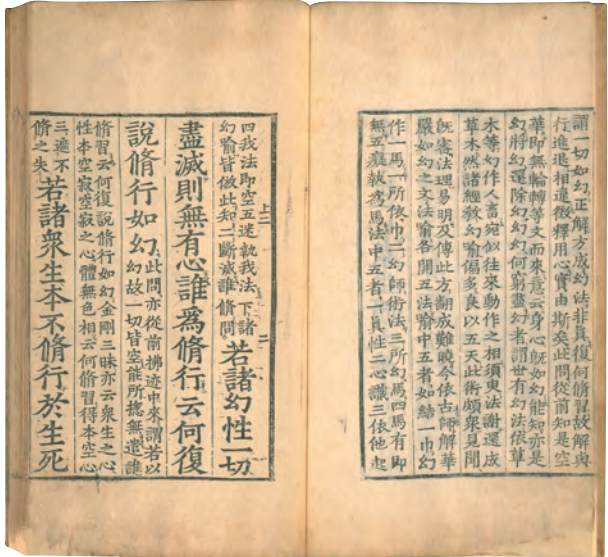 謂一切如幻正解方成約法非真復何脩習故解與
行進退相違徵釋用心實由斯矣此問從前知是空
華即無輪轉等文而來意云身心既如幻能知亦是
幻將幻還除幻幻幻何窮盡幻者謂世有幻法依草
木等幻作人畜宛似往來動作之相須臾法謝還成
草木然諸經教幻喻偏多良以五天此術頗衆見聞
既審法理易明及傳此方翻成難曉今依古師解華
嚴如幻之文法喻各開五法喻中五者如結一巾幻
作一馬一所依巾二幻師術法三所幻馬四馬有即
無五癡執爲馬法中五者一真性二心識三依他起
四我法即空五迷執我法下諸
幻喻皆倣此知二斷滅誰脩問
若諸幻性一切
盡滅則無有心誰爲脩行云何復
說脩行如幻
此問亦從前拂迹中來謂若以
幻故一切皆空能所揔無遣誰
脩習云何復說脩行如幻金剛三昧亦云衆生之心
性本空寂空寂之心體無色相云何脩習得本空心
三遮不
脩之失
若諸衆生本不脩行於生死
上二
二